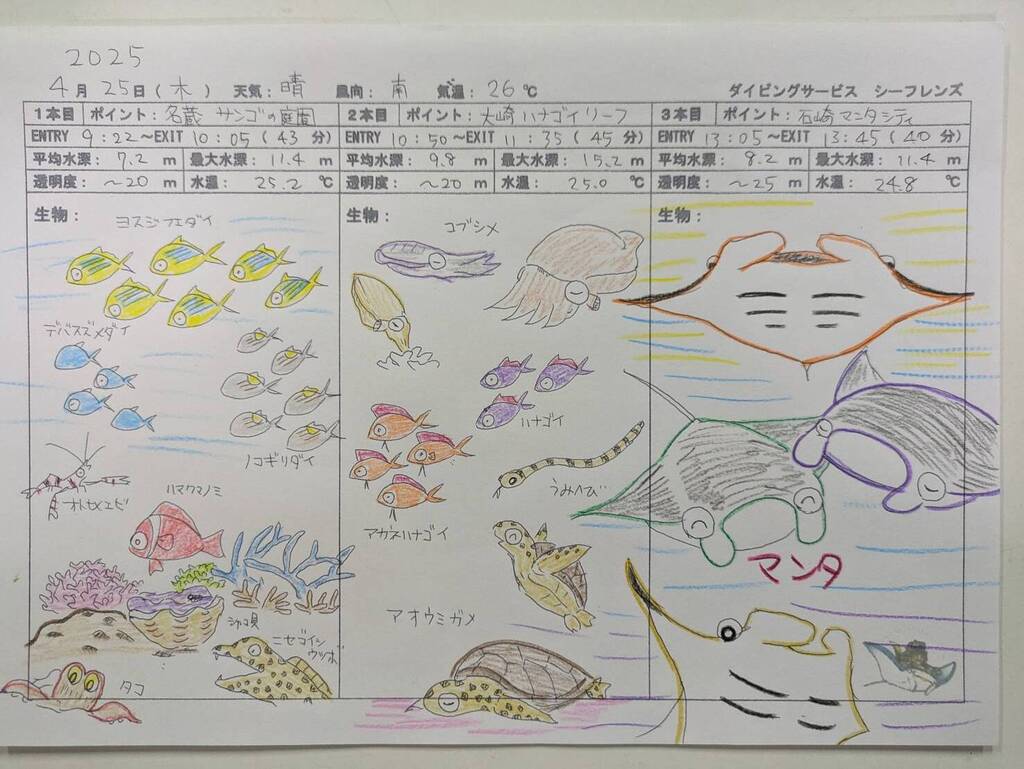 2025
4月 25日(木) 天気:晴 風向:南 気温:26℃ ダイビングサービス シーフレンズ
1本目 ポイント:名蔵 サンゴの庭園
ENTRY 9:22~EXIT 10:05(43 分)
平均水深: 7.2 m 最大水深: 11.4 m
透明度: ~20 m 水温: 25.2 ℃
生物:
ヨスジフエダイ
デバスズメダイ
ノコギリダイ
オトヒメエビ
ハマクマノミ
シャコ貝
ニセゴイシ
ウツボ
タコ
2本目 ポイント:大崎 ハナゴイリーフ
ENTRY 10:50~EXIT 11:35(45 分)
平均水深: 9.8 m 最大水深: 15.2 m
透明度: ~20 m 水温: 25.0 ℃
生物:
コブシメ
ハナゴイ
うみへび
アカネハナゴイ
アオウミガメ
3本目 ポイント:石崎 マンタシティ
ENTRY 13:05~EXIT 13:45(40 分)
平均水深: 8.2 m 最大水深: 11.4 m
透明度: ~25 m 水温: 24.8 ℃
生物:
マンタ